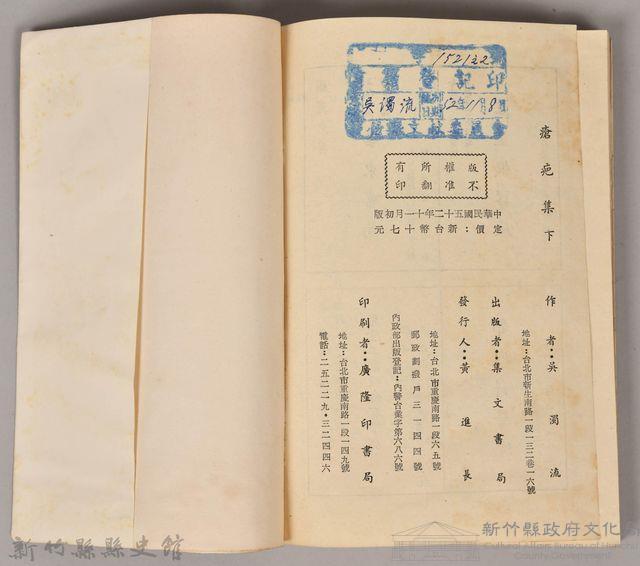 152122
登記印
吳濁流
52年11月8日
瘡疤集下
版權所有
不准翻印
中華民國五十二年十一月初版
定價：新台幣十七元
作者：吳濁流
地址：台北市新生南路一段一三二巷一六號
出版者：集文書局
發行人：黃進長
地址：台北市重慶南路一段六五號
郵政劃撥戶三一四四號
內政部出版登記：內警台業字第六八六號
印刷者：廣隆印書局
地址：台北市重慶南路一段一四九號
電話：二五二二九・三二四四六
新竹縣縣史館
新竹縣政府文化局
Cultural Affairs Bureau of Hsinchu
County Government